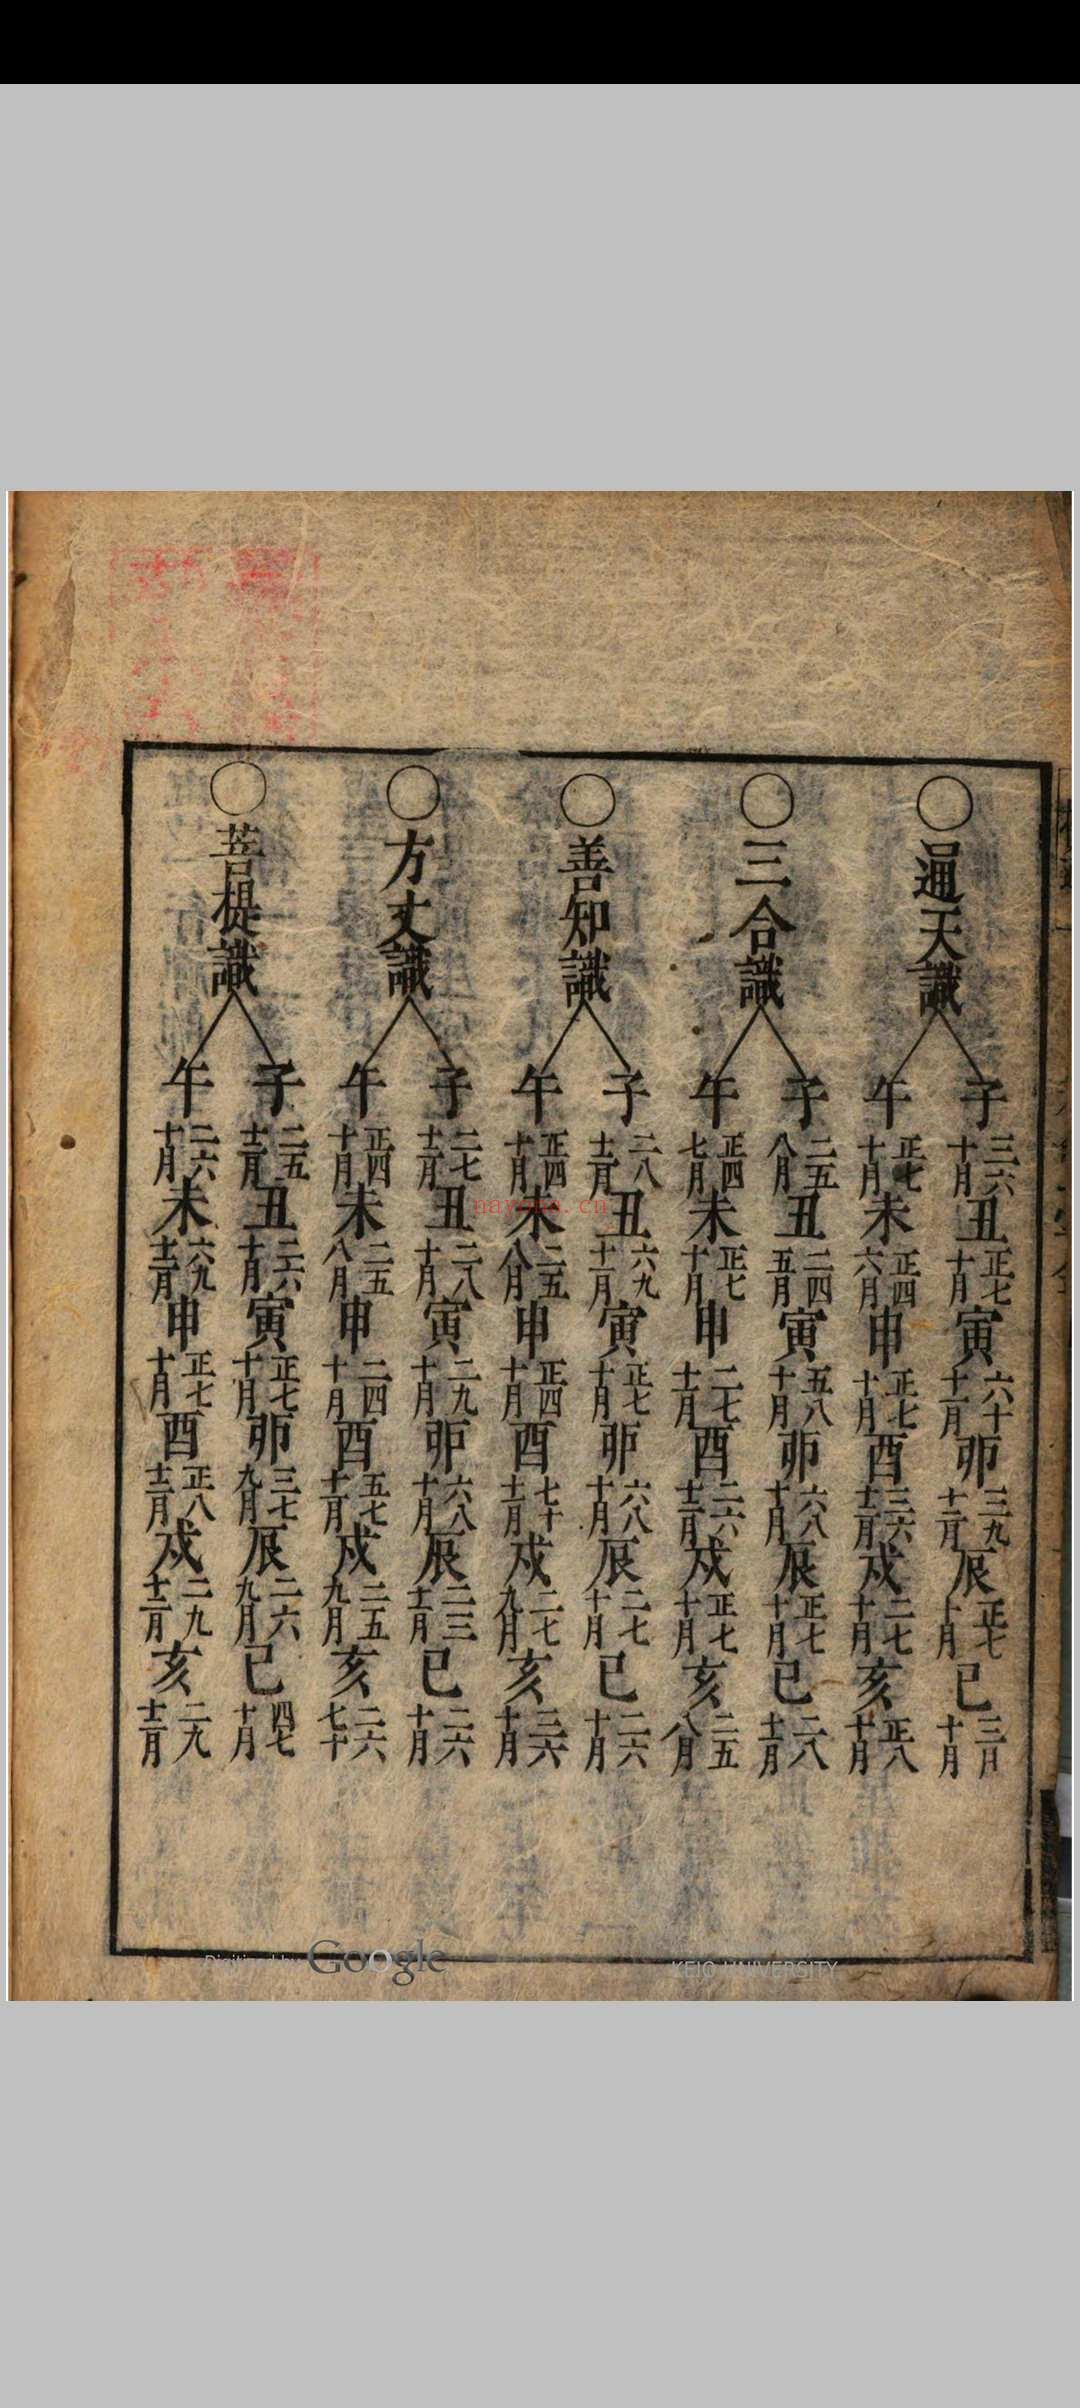 ○通天識
子 三六十月 丑 正七十月 寅 六十十一月 卯 三九十二月 辰 正七十月 巳 三月十月
午 正七十月 未 正四六月 申 正七十月 酉 三六十二月 戌 二七十月 亥 正八十月
○三合識
子 二五八月 丑 二四五月 寅 五八十月 卯 六八十月 辰 正七十月 巳 二八十二月
午 正四七月 未 正七十月 申 二七十二月 酉 二六十二月 戌 正七十月 亥 二五八月
○善知識
子 二八十二月 丑 六九十一月 寅 正七十月 卯 六八十月 辰 二七十月 巳 二六十月
午 正四十月 未 二五八月 申 正四十月 酉 七十十二月 戌 二七九月 亥 三六十月
○方丈識
子 二七十二月 丑 二八十月 寅 二九十月 卯 六八十月 辰 二三十二月 巳 二六十月
午 正四十月 未 二五八月 申 二四十月 酉 五七十二月 戌 二五九月 亥 二六七十
○菩提識
子 二五十二月 丑 二六十月 寅 正七十月 卯 三七九月 辰 二六九月 巳 四七十月
午 二六十月 未 六九十二月 申 正七十月 酉 正八十二月 戌 二九十二月 亥 二九十二月
nayona.cn
Digitized by Google
KEIO UNIVERSITY